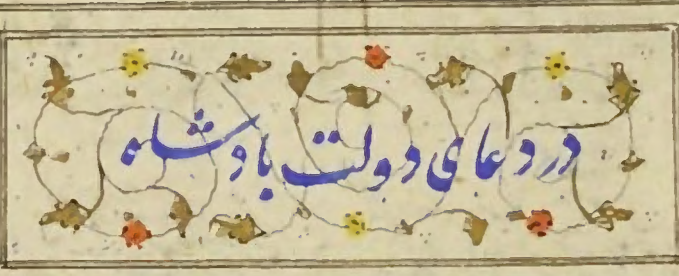 در دعای دولت بادشاه